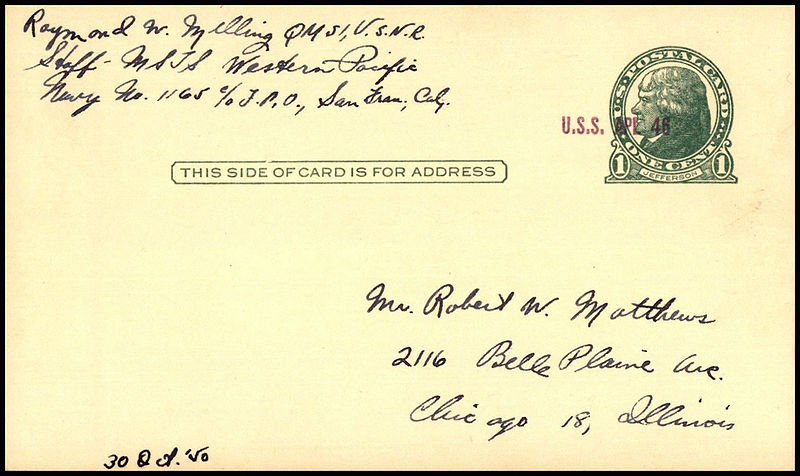 Raymond W. Melling QMS1, U.S.N.R.
Staff - MSTS Western Pacific
Navy No. 1165 c/o F.P.O., San Fran, Caly.
U.S. POSTAL CARD
U.S.S. APL 46
ONE CENT
1 JEFFERSON 1
THIS SIDE OF CARD IS FOR ADDRESS
Mr. Robert W. Matthews
2116 Belle Plaine Ave.
Chicago 18, Illinois
30 Oct. '50